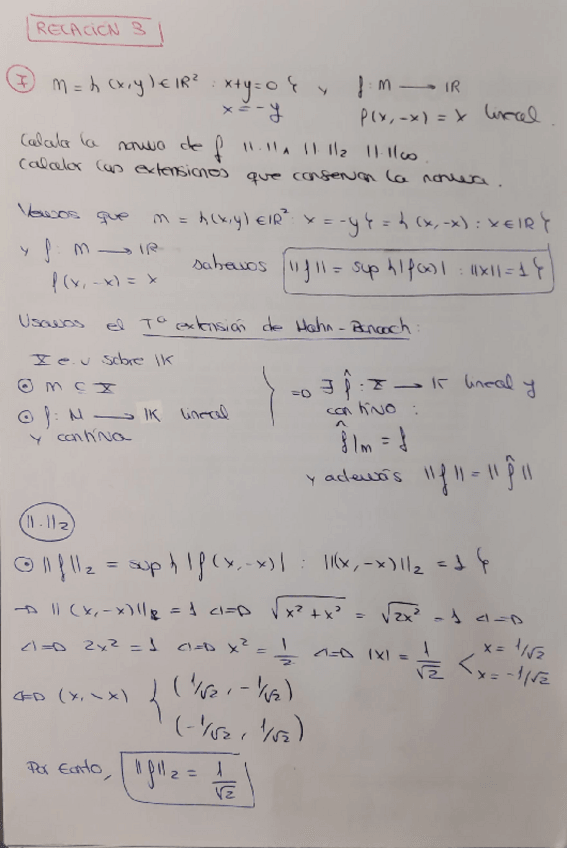 RELACIÓN 3
7 M = { (x,y) ∈ ℝ² : x+y=0 } y f: M → ℝ
x = -y f(x,-x) = x lineal.
Calcular la norma de f ||·||₁ ||·||₂ ||·||∞.
Calcular las extensiones que conservan la norma.
Vemos que M = { (x,y) ∈ ℝ² : x = -y } = { (x,-x) : x ∈ ℝ }
y f: M → ℝ
f(x,-x) = x
sabemos ||f|| = sup { |f(x)| : ||x|| = 1 }
Usamos el Tª extensión de Hahn-Banach:
X e.v sobre 𝕂
⊙ M ⊆ X
⊙ f: M → 𝕂 lineal
y continua
⇒ ∃ f̂ : X → 𝕂 lineal y
continuo :
f̂|_M = f
y además ||f|| = ||f̂||
||·||₂
⊙ ||f||₂ = sup { |f(x,-x)| : ||(x,-x)||₂ = 1 }
→ ||(x,-x)||₂ = 1 ⇔ √(x²+x²) = √(2x²) = 1 ⇔
⇔ 2x² = 1 ⇔ x² = 1/2 ⇔ |x| = 1/√2 < x = 1/√2
x = -1/√2
⇔ (x,-x) { (1/√2, -1/√2)
(-1/√2, 1/√2)
Por tanto, ||f||₂ = 1/√2